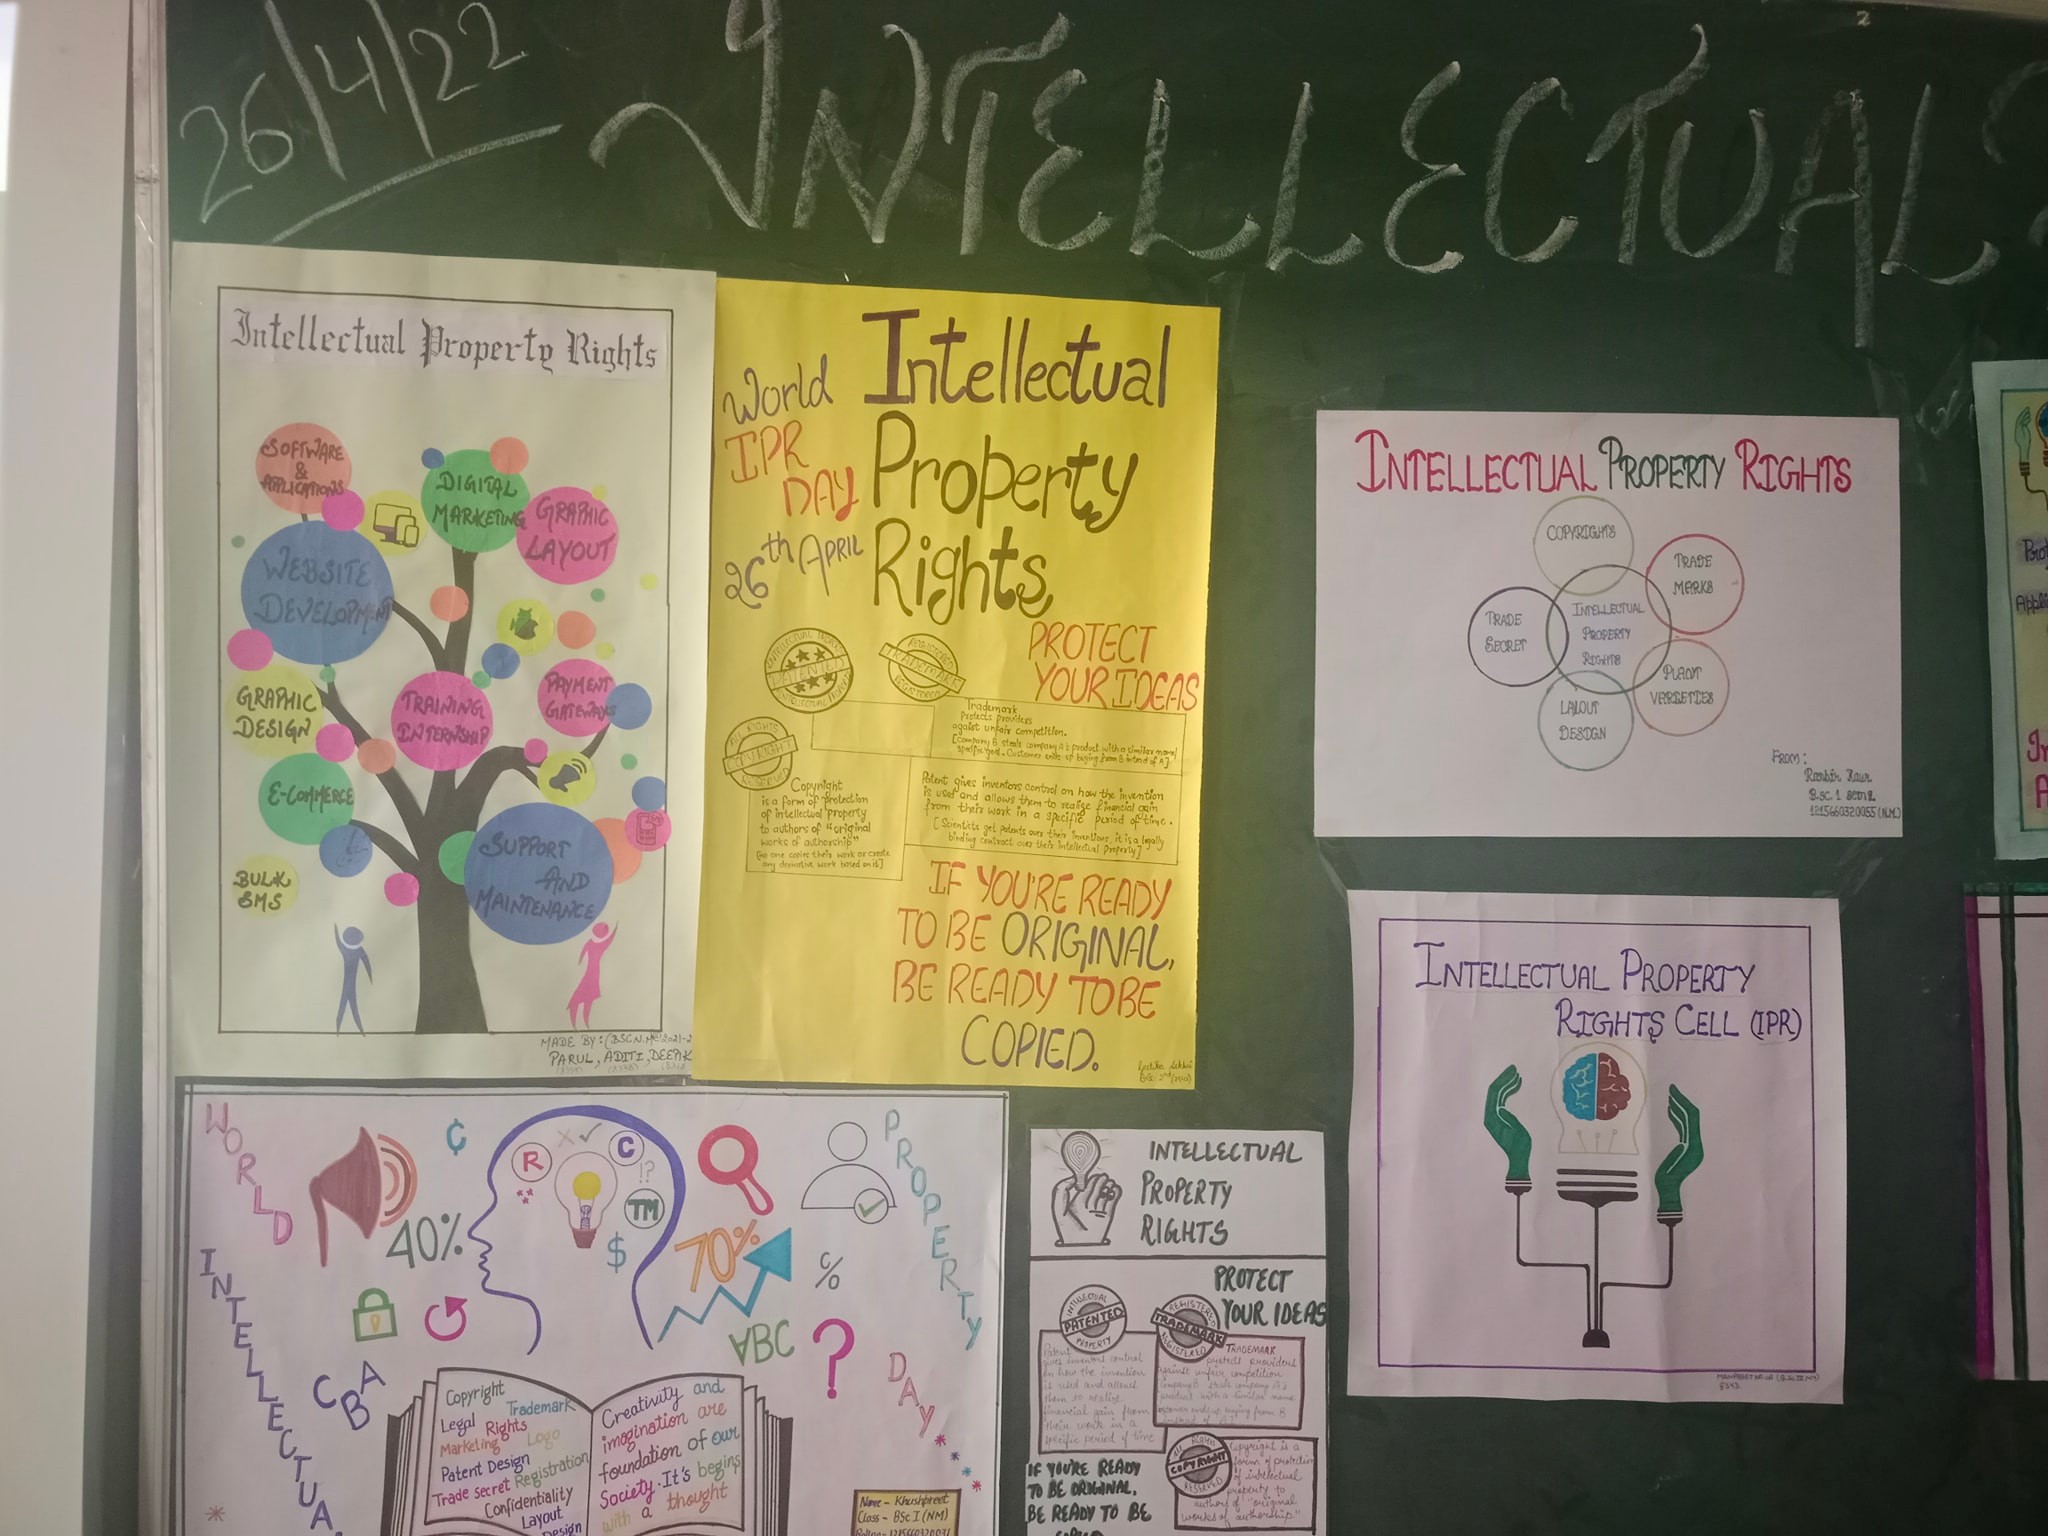 26/4/22
INTELLECTUAL
Intellectual Property Rights
SOFTWARE
&
APPLICATIONS
DIGITAL
MARKETING
GRAPHIC
LAYOUT
WEBSITE
DEVELOPMENT
GRAPHIC
DESIGN
TRAINING
INTERNSHIP
PAYMENT
GATEWAYS
E-COMMERCE
SUPPORT
AND
MAINTENANCE
BULK
SMS
MADE BY:
PARUL, ADITI, DEEPAK
World
IPR
DAY
26th APRIL
Intellectual
Property
Rights
PROTECT
YOUR IDEAS
PATENTED
REGISTERED
TRADEMARK
REGISTERED
ALL RIGHTS
COPYRIGHT
RESERVED
Trademark
Protects providers
against unfair competition.
[Company B steals company A's product with a similar name/
Copyright
is a form of protection
of intellectual property
to authors of "original
works of authorship"
[no one copies their work or create
any derivative work based on it]
Patent gives inventors control on how the invention
is used and allows them to realize financial gain
from their work in a specific period of time.
[Scientists get patents over their inventions, it is a legally
binding contract over their intellectual property]
IF YOU'RE READY
TO BE ORIGINAL,
BE READY TO BE
COPIED.
INTELLECTUAL PROPERTY RIGHTS
COPYRIGHTS
TRADE
MARKS
TRADE
SECRET
INTELLECTUAL
PROPERTY
RIGHTS
PLANT
VERIETIES
LAYOUT
DESIGN
FROM:
Kaur
B.sc. 1 sem 2
1215660320055 (N.M.)
INTELLECTUAL PROPERTY
RIGHTS CELL (IPR)
WORLD
INTELLECTUA
PROPERTY
DAY
40%
R
C
!?
TM
$
70%
%
ABC
?
CBA
Copyright
Trademark
Legal Rights
Marketing Logo
Patent Design
Trade secret Registration
Confidentiality
Layout
Design
Creativity and
imagination are
foundation of our
Society. It's begins
with a thought
Name - Khushpreet
Class - BSc I (NM)
INTELLECTUAL
PROPERTY
RIGHTS
PROTECT
YOUR IDEAS
INTELLECTUAL
PATENTED
PROPERTY
REGISTERED
TRADEMARK
REGISTERED
Patent
gives inventors control
on how the invention
is used and allows
them to realize
financial gain from
their work in a
specific period of time
TRADEMARK
protects providers
against unfair competition
Company B steals company A's
product with a similar name
COPYRIGHT
RESERVED
Copyright is a
form of protection
of intellectual
property to
author of "original
works of authorship"
IF YOU'RE READY
TO BE ORIGINAL,
BE READY TO BE